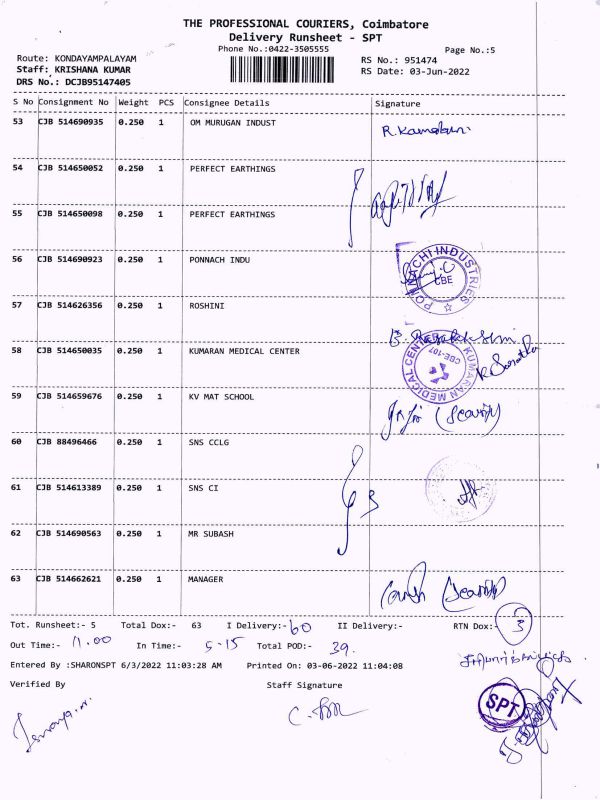 THE PROFESSIONAL COURIERS, Coimbatore
Delivery Runsheet - SPT
Phone No.:0422-3505555
Page No.:5
Route: KONDAYAMPALAYAM
Staff: KRISHANA KUMAR
DRS No.: DCJB95147405
RS No.: 951474
RS Date: 03-Jun-2022
S No Consignment No Weight PCS Consignee Details Signature
53 CJB 514690935 0.250 1 OM MURUGAN INDUST
54 CJB 514650052 0.250 1 PERFECT EARTHINGS
55 CJB 514650098 0.250 1 PERFECT EARTHINGS
56 CJB 514690923 0.250 1 PONNACH INDU
CBE
57 CJB 514626356 0.250 1 ROSHINI
58 CJB 514650035 0.250 1 KUMARAN MEDICAL CENTER
KUMARAN MEDICAL CENT
CBE-107
59 CJB 514659676 0.250 1 KV MAT SCHOOL
60 CJB 88496466 0.250 1 SNS CCLG
61 CJB 514613389 0.250 1 SNS CI
3
62 CJB 514690563 0.250 1 MR SUBASH
63 CJB 514662621 0.250 1 MANAGER
Tot. Runsheet:- 5 Total Dox:- 63 I Delivery:- 60 II Delivery:- RTN Dox:- 3
Out Time:- 11.00 In Time:- 5-15 Total POD:- 39.
Entered By :SHARONSPT 6/3/2022 11:03:28 AM Printed On: 03-06-2022 11:04:08
Verified By Staff Signature
SPT